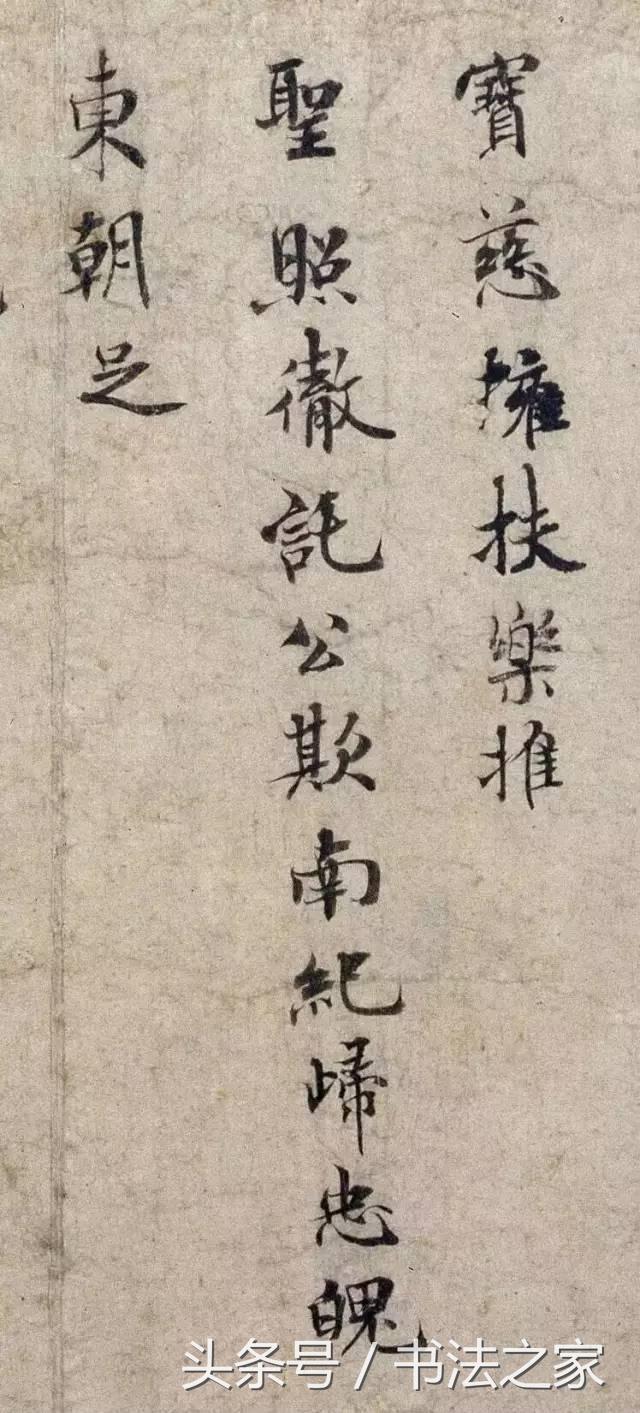 寶慈擁扶樂推
聖照徹託公欺南紀歸忠魄
東朝足
头条号 / 书法之家